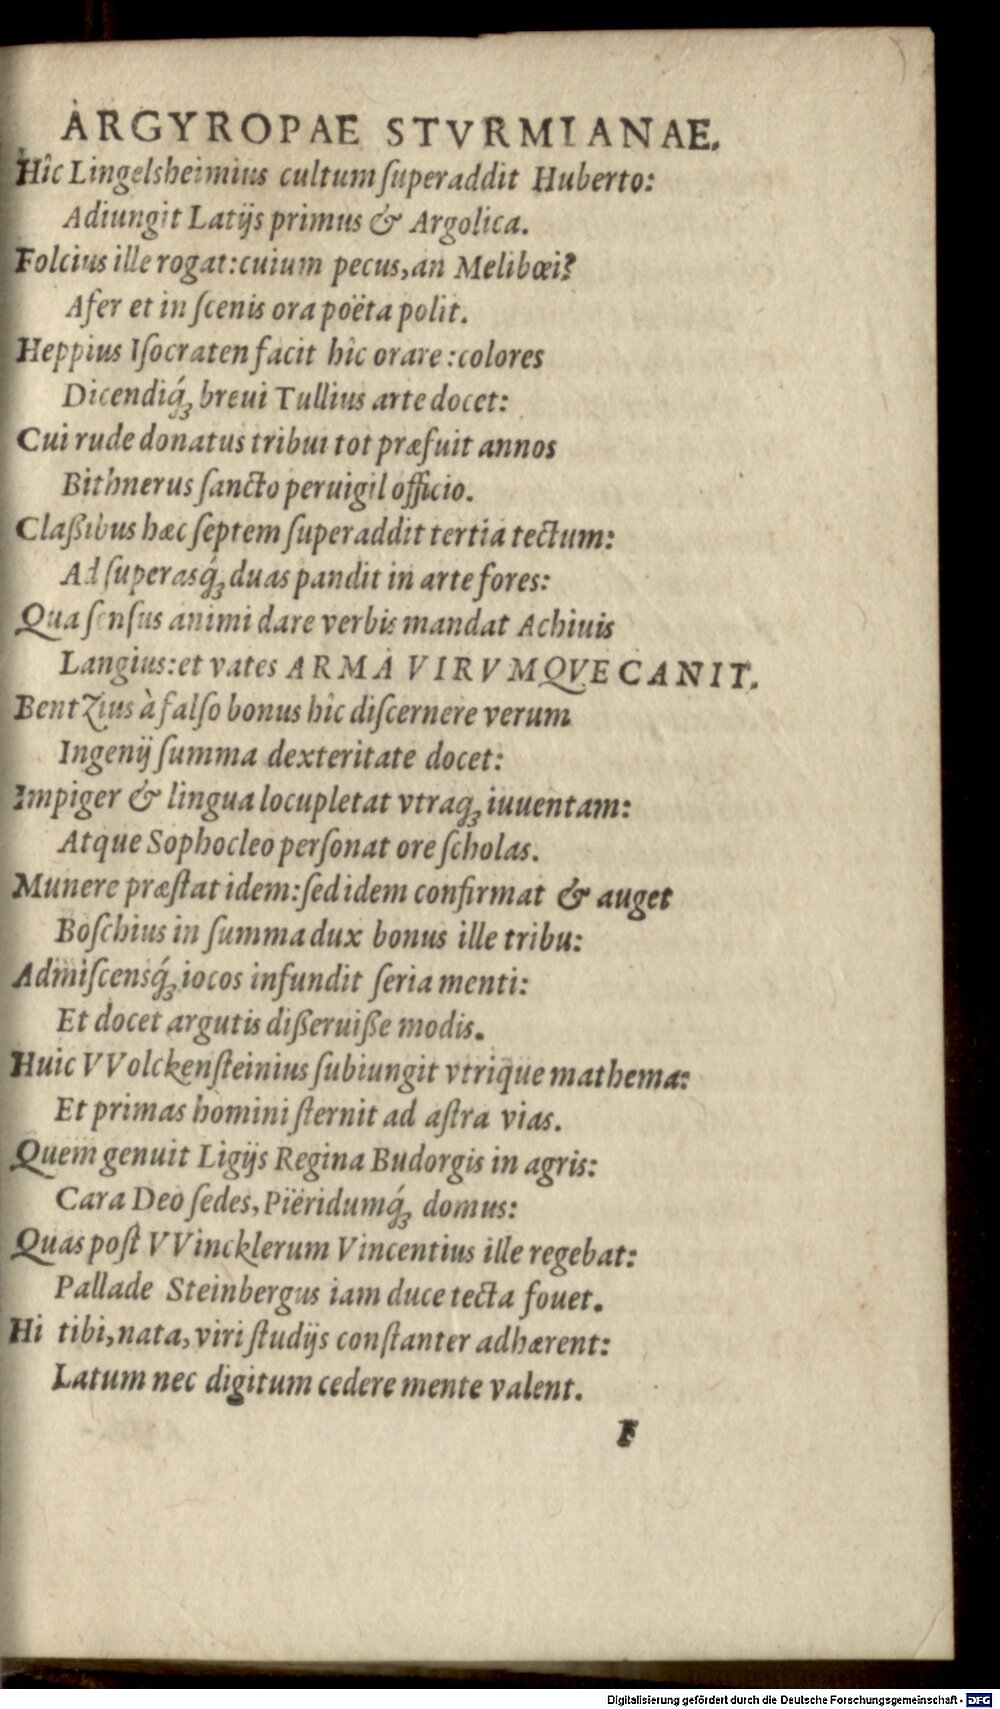 ARGYROPAE STVRMIANAE.
Hîc Lingelsheimius cultum ſuperaddit Huberto:
Adiungit Latijs primus & Argolica.
Folcius ille rogat: cuium pecus, an Melibœi?
Afer et in ſcenis ora poëta polit.
Heppius Iſocraten facit hîc orare: colores
Dicendiq́ꝫ breui Tullius arte docet:
Cui rude donatus tribui tot præfuit annos
Bithnerus ſancto peruigil officio.
Claßibus hæc ſeptem ſuperaddit tertia tectum:
Ad ſuperasq́ꝫ duas pandit in arte fores:
Qua ſenſus animi dare verbis mandat Achiuis
Langius: et vates ARMA VIRVMQVE CANIT.
Bentzius à falſo bonus hîc diſcernere verum
Ingenij ſumma dexteritate docet:
Impiger & lingua locupletat vtraqꝫ iuuentam:
Atque Sophocleo perſonat ore ſcholas.
Munere præſtat idem: ſed idem confirmat & auget
Boſchius in ſumma dux bonus ille tribu:
Admiſcensq́ꝫ iocos infundit ſeria menti:
Et docet argutis dißeruiße modis.
Huic VVolckenſteinius ſubiungit vtrique mathema:
Et primas homini ſternit ad aſtra vias.
Quem genuit Ligijs Regina Budorgis in agris:
Cara Deo ſedes, Piëridumq́ꝫ domus:
Quas poſt VVincklerum Vincentius ille regebat:
Pallade Steinbergus iam duce tecta fouet.
Hi tibi, nata, viri ſtudijs conſtanter adhærent:
Latum nec digitum cedere mente valent.
F
Digitalisierung gefördert durch die Deutsche Forschungsgemeinschaft - DFG